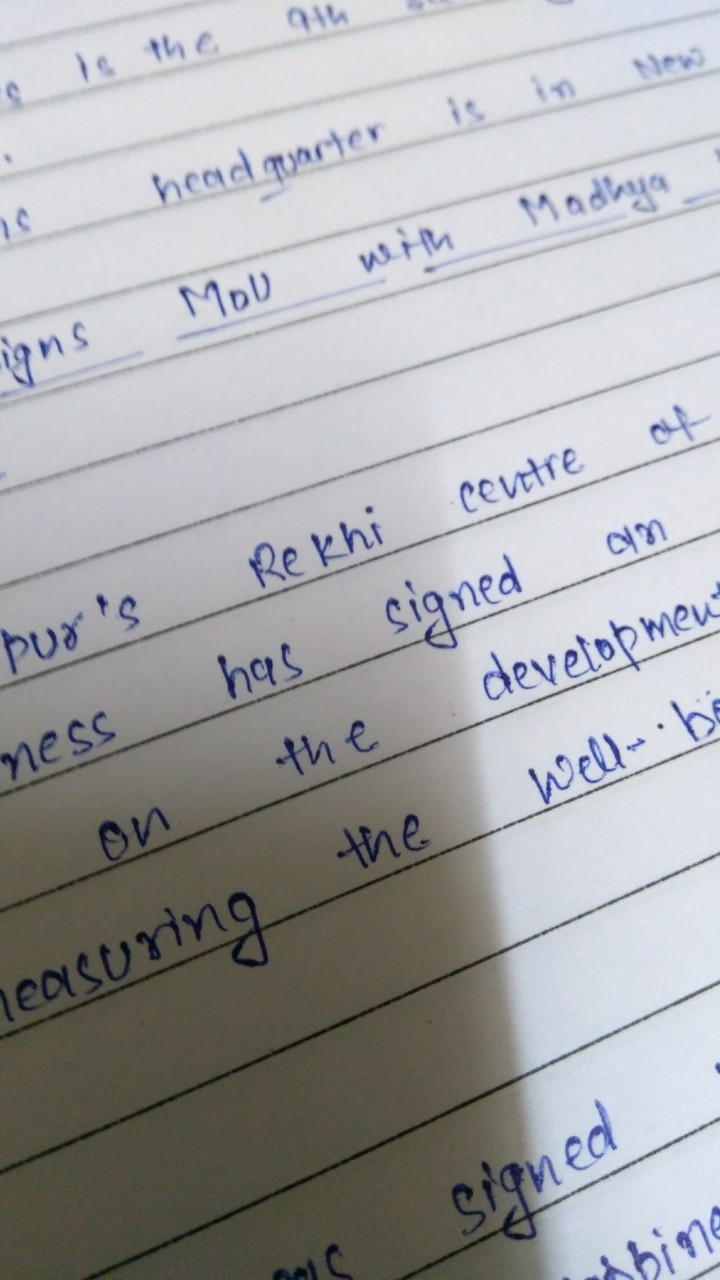 is the 9th
headquarter is in New
signs MoU with Madhya
pur's Rekhi centre of
ness has signed an
on the development
measuring the well-be
signed